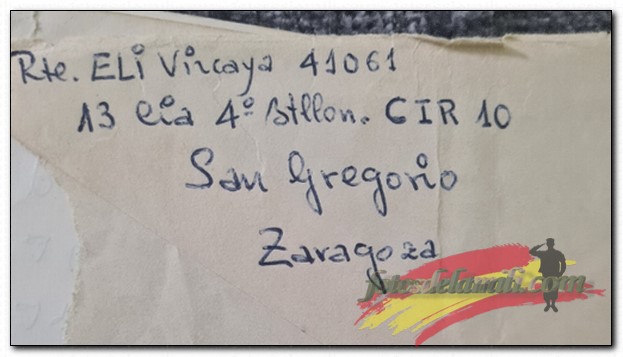 Rte. ELi Vizcaya 41061
13 Cia 4º Btllon. CIR 10
San Gregorio
Zaragoza
fotosdelamili.com